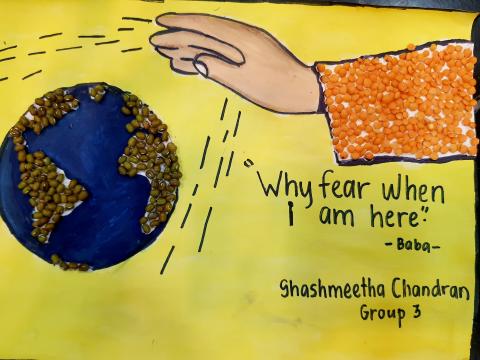 "Why fear when
i am here."
- Baba -
Shashmeetha Chandran
Group 3